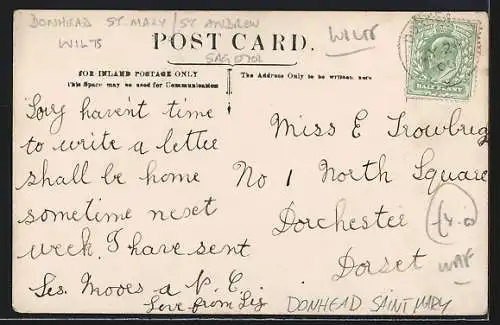 DONHEAD ST. MARY / ST ANDREW
WILTS
WILTS
POST CARD.
SAG 0701
FOR INLAND POSTAGE ONLY
This Space may be used for Communication
The Address Only to be written here
HALFPENNY
Sory haven't time
to write a letter
shall be home
sometime next
week. I have sent
Les. Moores a P.C.
Love from Lis
Miss E Trowbrig
No 1 North Square
Dorchester
Dorset
£4.00
DONHEAD SAINT MARY